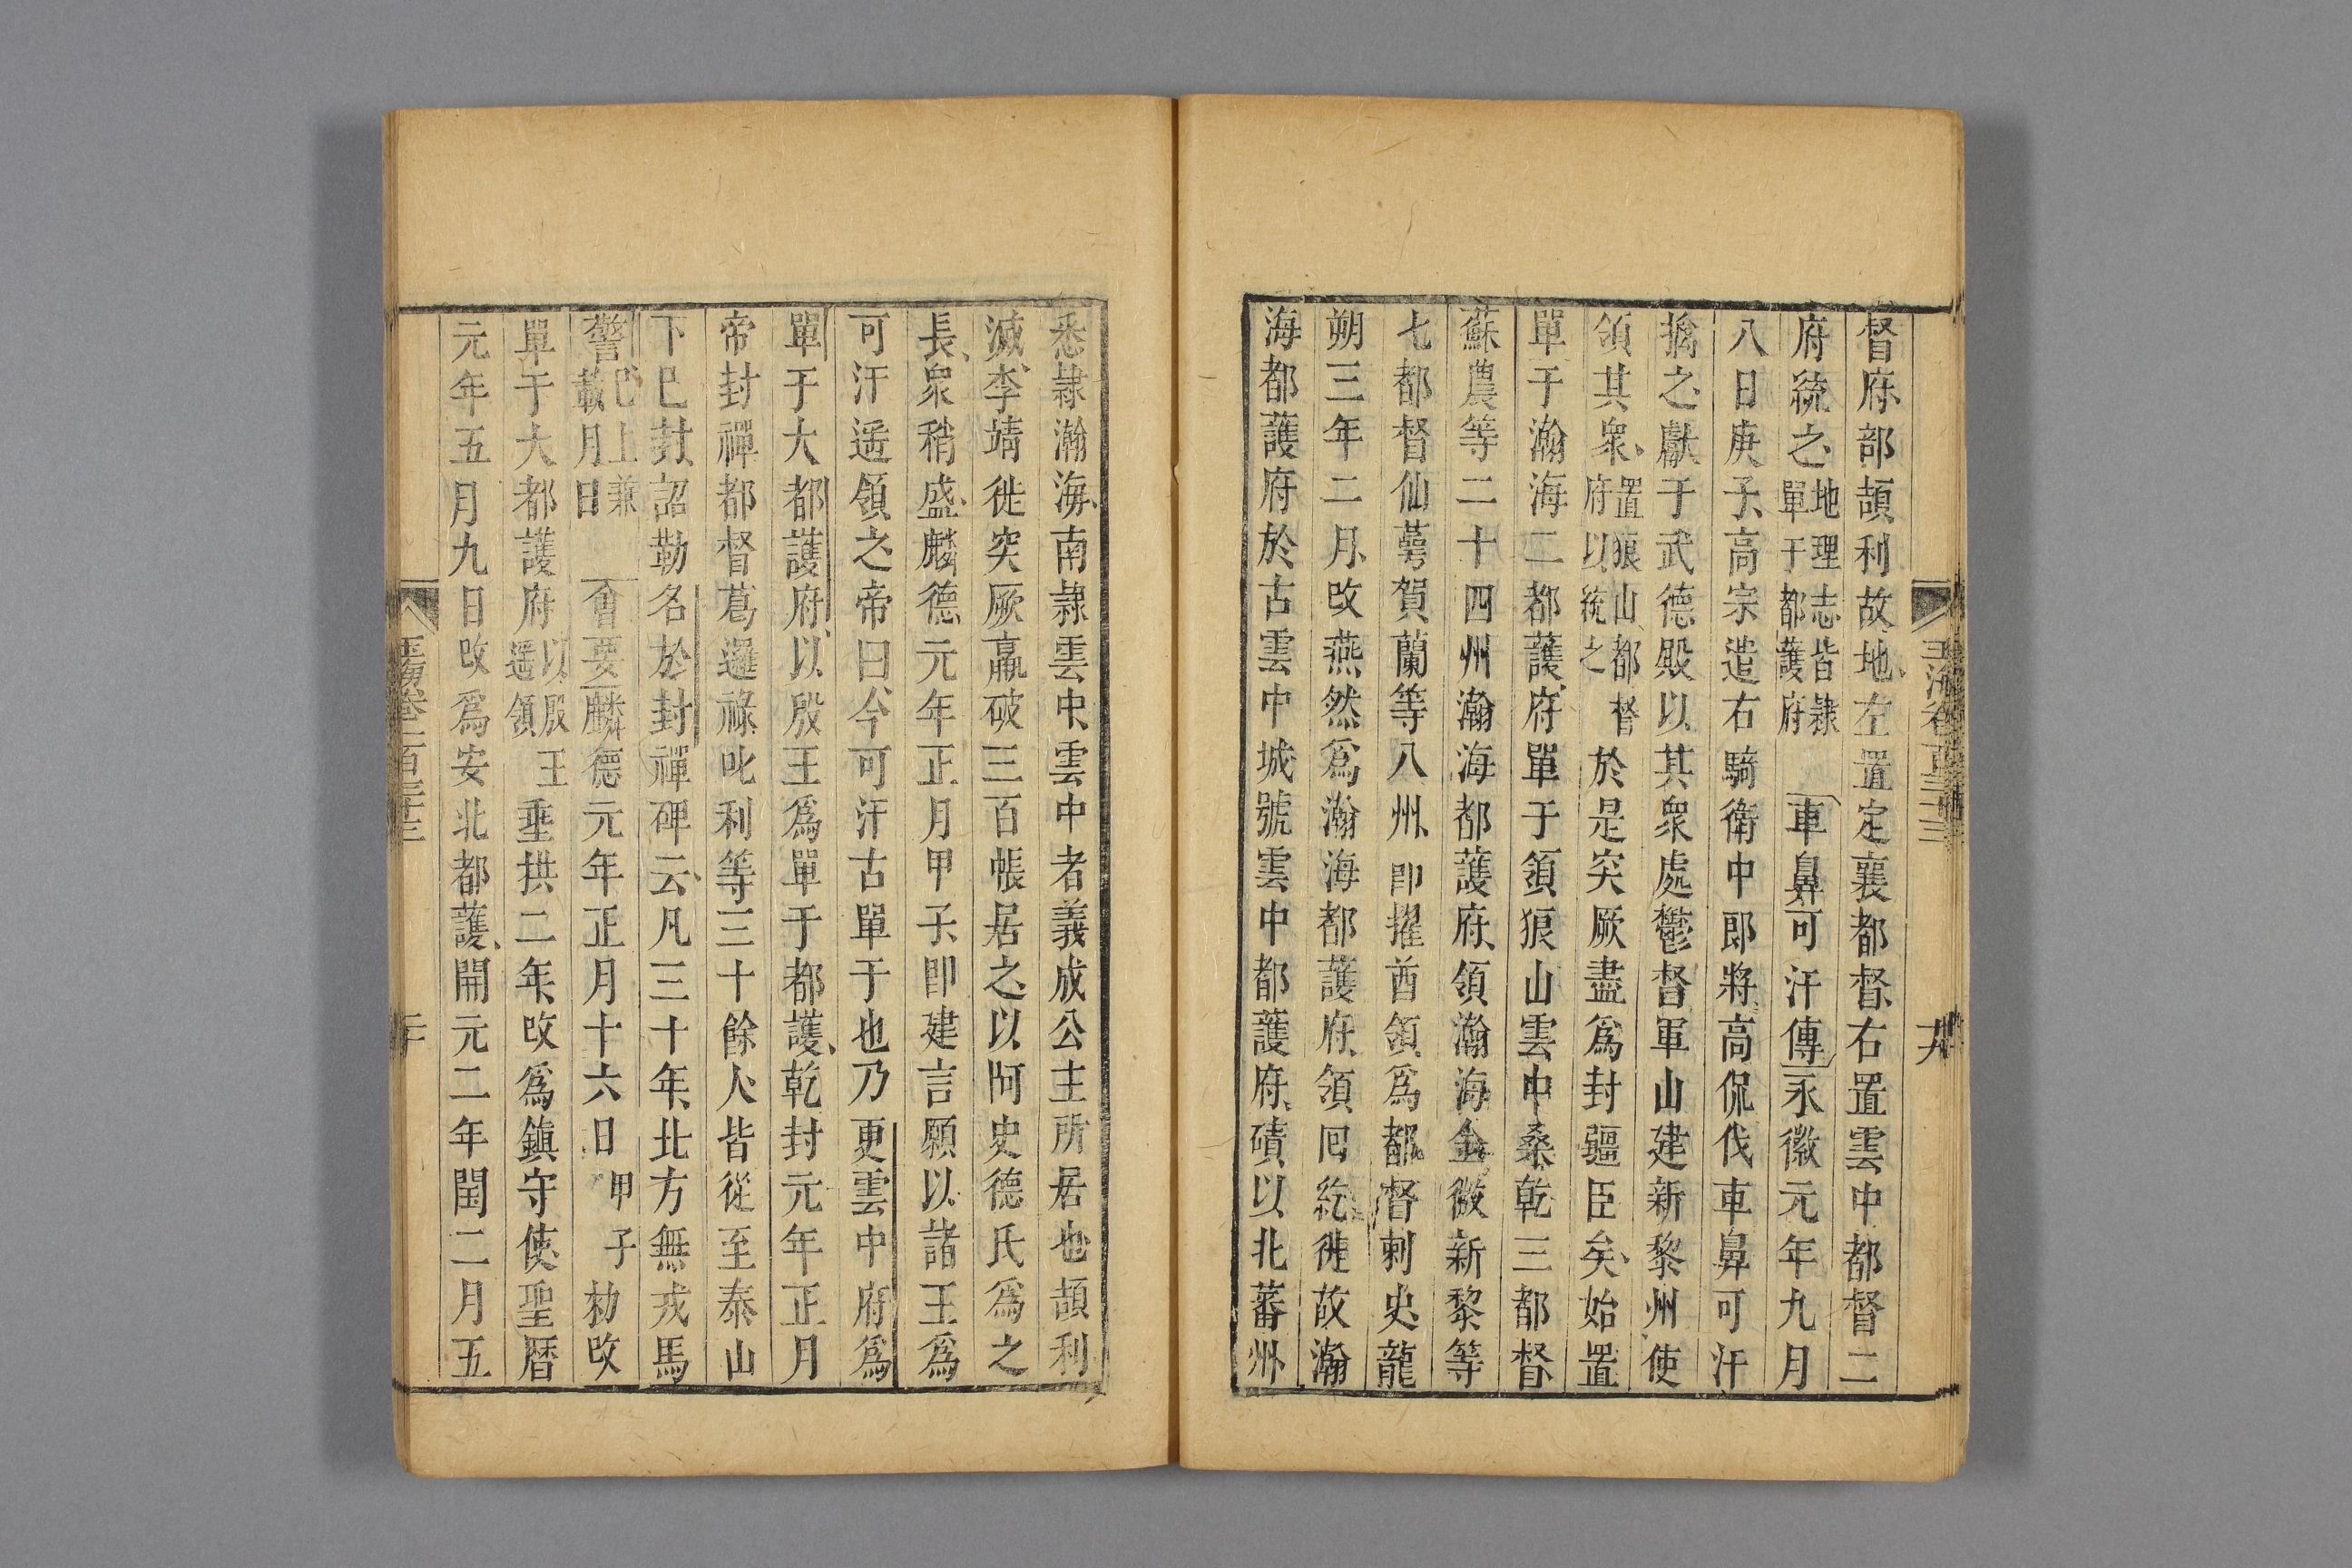 玉海卷一百三十三
十九
督府部頡利故地左置定襄都督右置雲中都督二
府統之地理志皆隷單于都護府車鼻可汗傳永徽元年九月
八日庚子高宗遣右騎衛中郎將高侃伐車鼻可汗
擒之獻于武德殿以其衆處鬱督軍山建新黎州使
領其衆置狼山都督府以統之於是突厥盡爲封疆臣矣始置
單于瀚海二都護府單于領狼山雲中桑乾三都督
蘇農等二十四州瀚海都護府領瀚海金微新黎等
七都督仙萼賀蘭等八州即擢酋領爲都督刺史龍
朔三年二月改燕然爲瀚海都護府領回紇徙故瀚
海都護府於古雲中城號雲中都護府磧以北蕃州
悉隷瀚海南隷雲中雲中者義成公主所居也頡利
滅李靖徙突厥羸破三百帳居之以阿史德氏爲之
長衆稍盛麟德元年正月甲子即建言願以諸王爲
可汗遥領之帝曰今可汗古單于也乃更雲中府爲
單于大都護府以殷王爲單于都護乾封元年正月
帝封禪都督葛邏祿叱利等三十餘人皆從至泰山
下已封詔勒名於封禪碑云凡三十年北方無戎馬
警已上兼載月日會要麟德元年正月十六日甲子勑改
單于大都護府以殷王遥領垂拱二年改爲鎮守使聖曆
元年五月九日改爲安北都護開元二年閏二月五
玉海卷一百三十三
二十